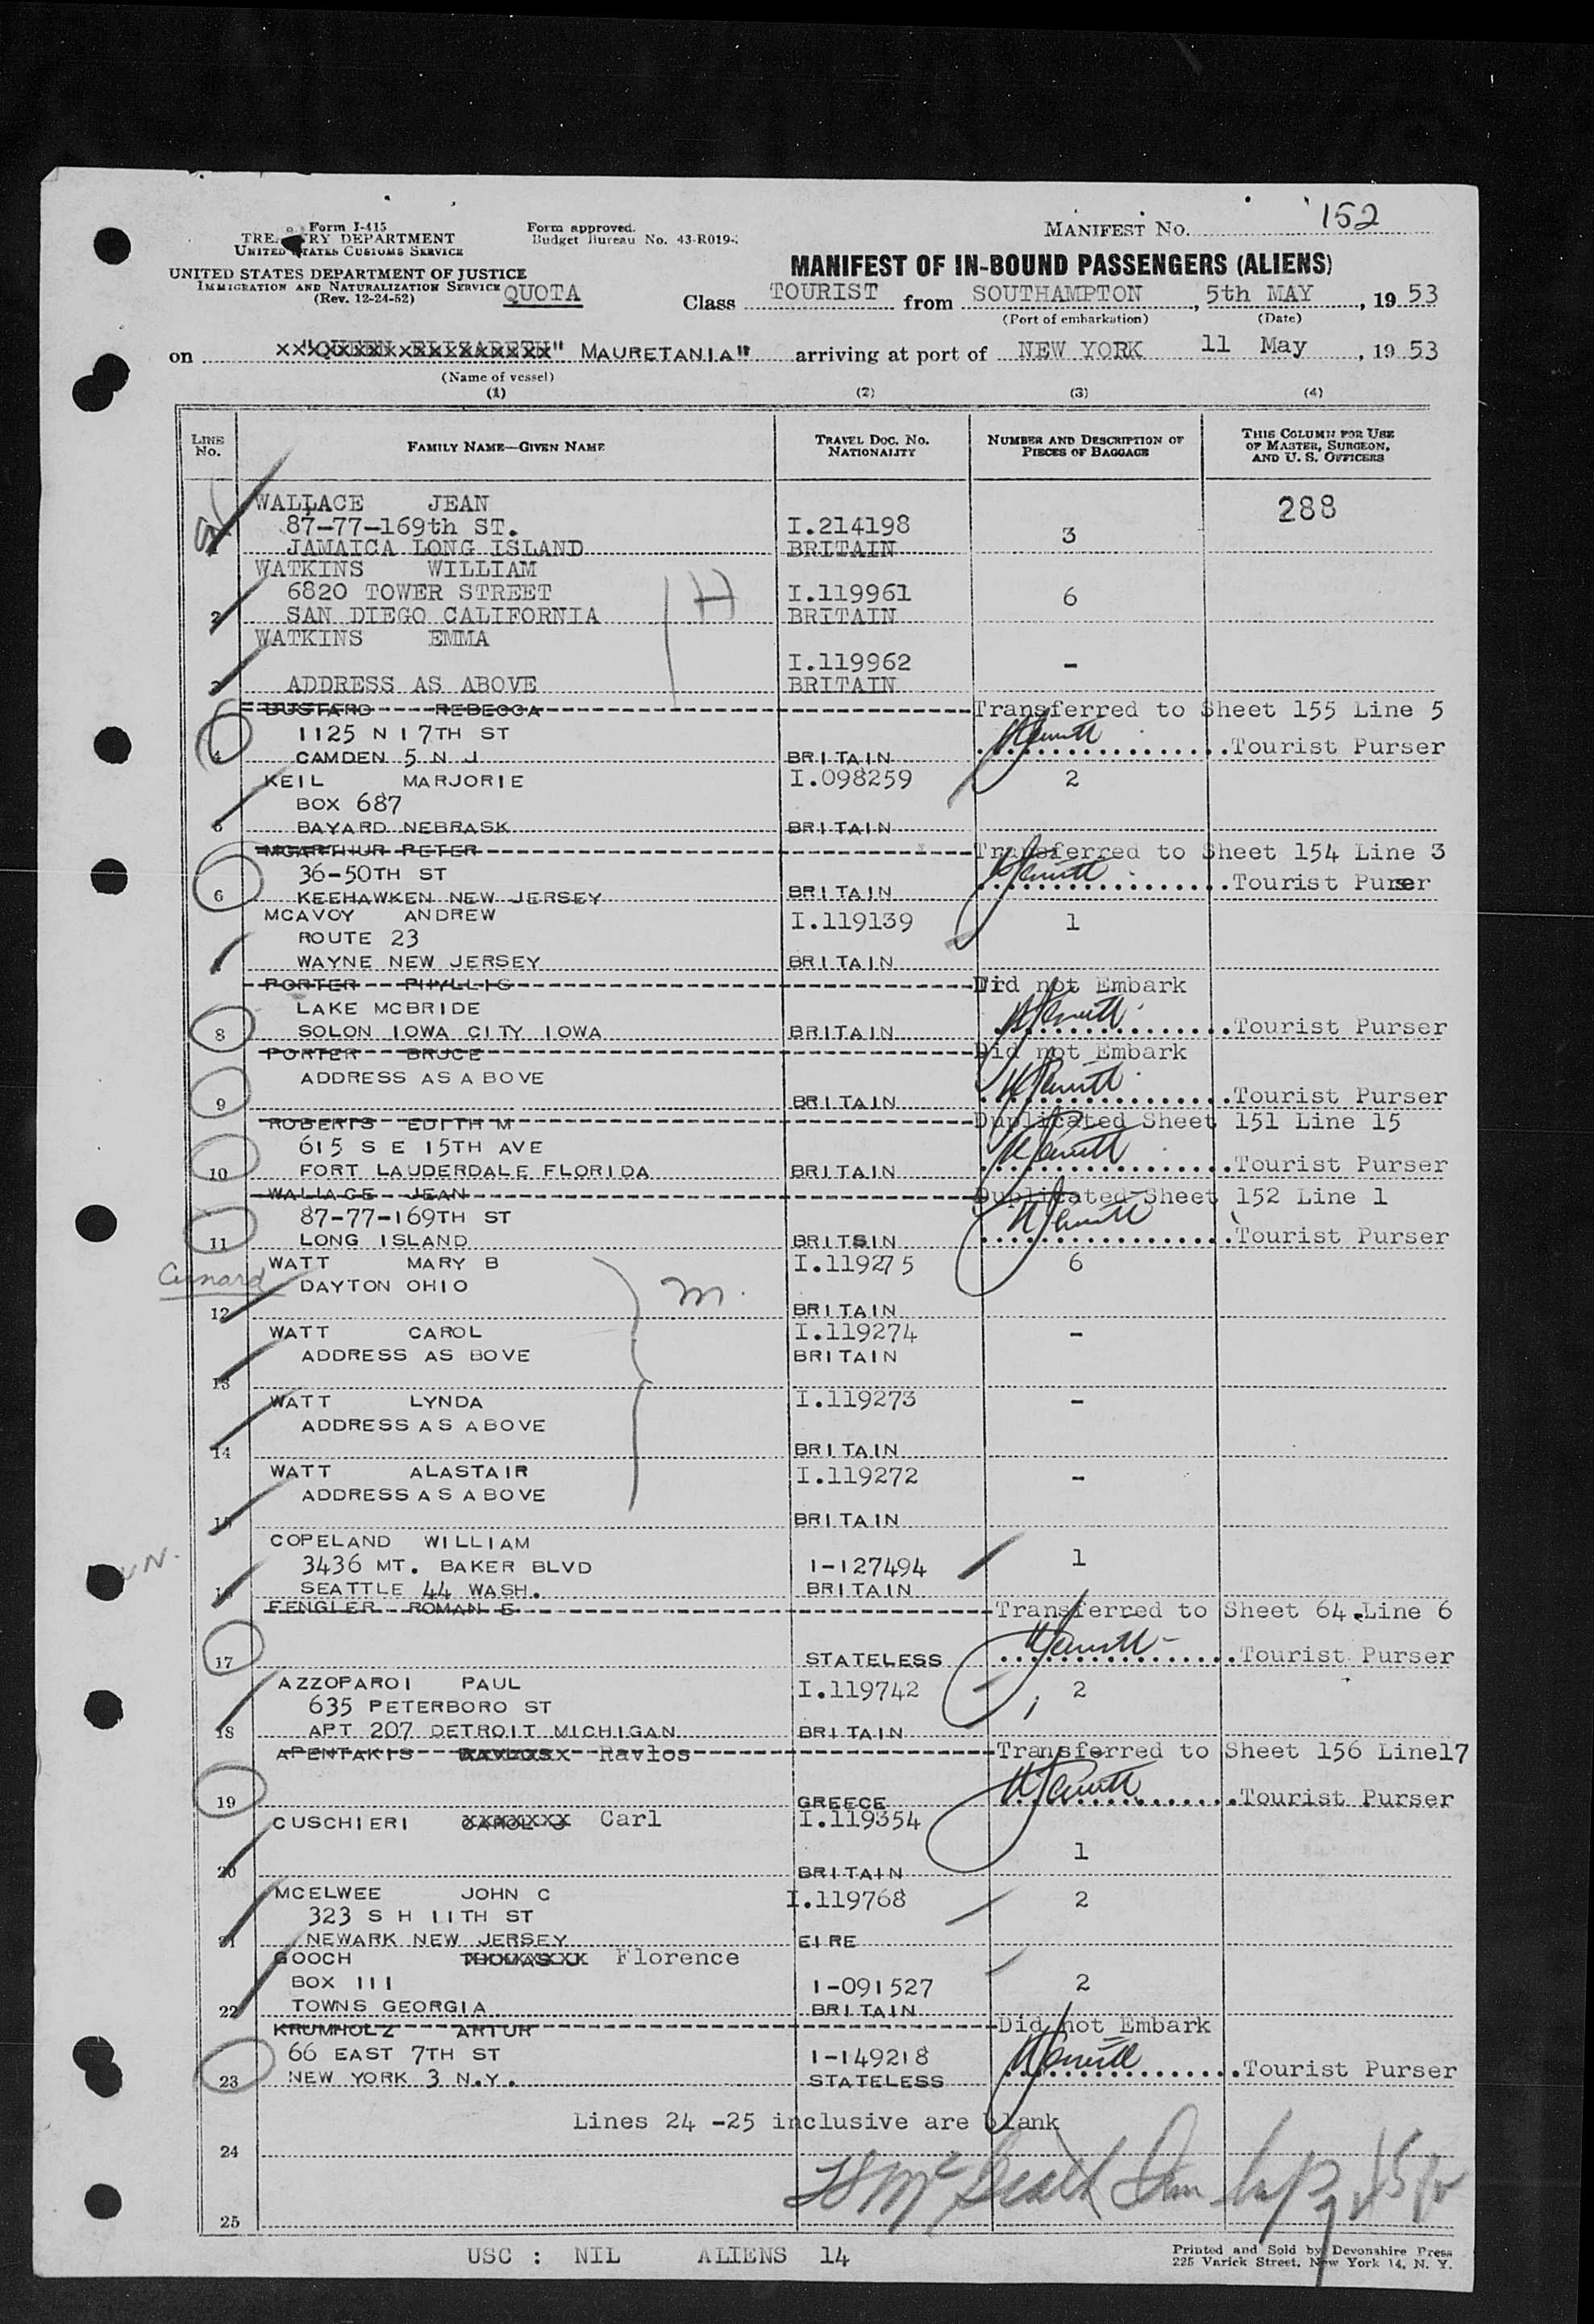 Form I-415
TREASURY DEPARTMENT
UNITED STATES CUSTOMS SERVICE
Form approved.
Budget Bureau No. 43-R019-
MANIFEST NO. 152
UNITED STATES DEPARTMENT OF JUSTICE
IMMIGRATION AND NATURALIZATION SERVICE
(Rev. 12-24-52)
QUOTA
MANIFEST OF IN-BOUND PASSENGERS (ALIENS)
Class TOURIST from SOUTHAMPTON, 5th MAY, 1953
(Port of embarkation) (Date)
on "QUEEN ELIZABETH" MAURETANIA" arriving at port of NEW YORK 11 May, 1953
(Name of vessel)
(1) (2) (3) (4)
LINE No. FAMILY NAME—GIVEN NAME TRAVEL DOC. NO. NATIONALITY NUMBER AND DESCRIPTION OF PIECES OF BAGGAGE THIS COLUMN FOR USE OF MASTER, SURGEON, AND U. S. OFFICERS
WALLACE JEAN 288
87-77-169th ST. I.214198 3
JAMAICA LONG ISLAND BRITAIN
WATKINS WILLIAM H
6820 TOWER STREET I.119961 6
2 SAN DIEGO CALIFORNIA BRITAIN
WATKINS EMMA
I.119962 -
3 ADDRESS AS ABOVE BRITAIN
BUSTARD REBECCA Transferred to Sheet 155 Line 5
1125 N 17TH ST
4 CAMDEN 5 N J BRITAIN Tourist Purser
KEIL MARJORIE I.098259 2
BOX 687
5 BAYARD NEBRASK BRITAIN
MCARTHUR PETER Transferred to Sheet 154 Line 3
36-50TH ST Tourist Purser
6 KEEHAWKEN NEW JERSEY BRITAIN
MCAVOY ANDREW I.119139 1
ROUTE 23
WAYNE NEW JERSEY BRITAIN
PORTER PHYLLIS Did not Embark
LAKE MCBRIDE
8 SOLON IOWA CITY IOWA BRITAIN Tourist Purser
PORTER BRUCE Did not Embark
ADDRESS AS A BOVE
9 BRITAIN Tourist Purser
ROBERTS EDITH M Duplicated Sheet 151 Line 15
615 S E 15TH AVE
10 FORT LAUDERDALE FLORIDA BRITAIN Tourist Purser
WALLACE JEAN Duplicated Sheet 152 Line 1
87-77-169TH ST
11 LONG ISLAND BRITSIN Tourist Purser
Cunard WATT MARY B I.119275 6
DAYTON OHIO m.
12 BRITAIN
WATT CAROL I.119274 -
ADDRESS AS BOVE BRITAIN
13
WATT LYNDA I.119273 -
ADDRESS AS ABOVE
14 BRITAIN
WATT ALASTAIR I.119272 -
ADDRESS AS ABOVE
15 BRITAIN
COPELAND WILLIAM
3436 MT. BAKER BLVD I-127494 1
16 SEATTLE 44 WASH. BRITAIN
FENGLER ROMAN E Transferred to Sheet 64 Line 6
17 STATELESS Tourist Purser
AZZOPAROI PAUL I.119742 2
635 PETERBORO ST
18 APT 207 DETROIT MICHIGAN BRITAIN
APENTAKIS Ravlos Transferred to Sheet 156 Line17
19 GREECE Tourist Purser
CUSCHIERI Carl I.119354
1
20 BRITAIN
MCELWEE JOHN C I.119768 2
323 S H 11TH ST
21 NEWARK NEW JERSEY EIRE
GOOCH THOMAS Florence
BOX 111 I-091527 2
22 TOWNS GEORGIA BRITAIN
KRUMHOLZ ARTUR Did not Embark
66 EAST 7TH ST I-149218
23 NEW YORK 3 N.Y. STATELESS Tourist Purser
Lines 24 -25 inclusive are blank
24
25
USC : NIL ALIENS 14
Printed and Sold by Devonshire Press
225 Varick Street, New York 14, N. Y.